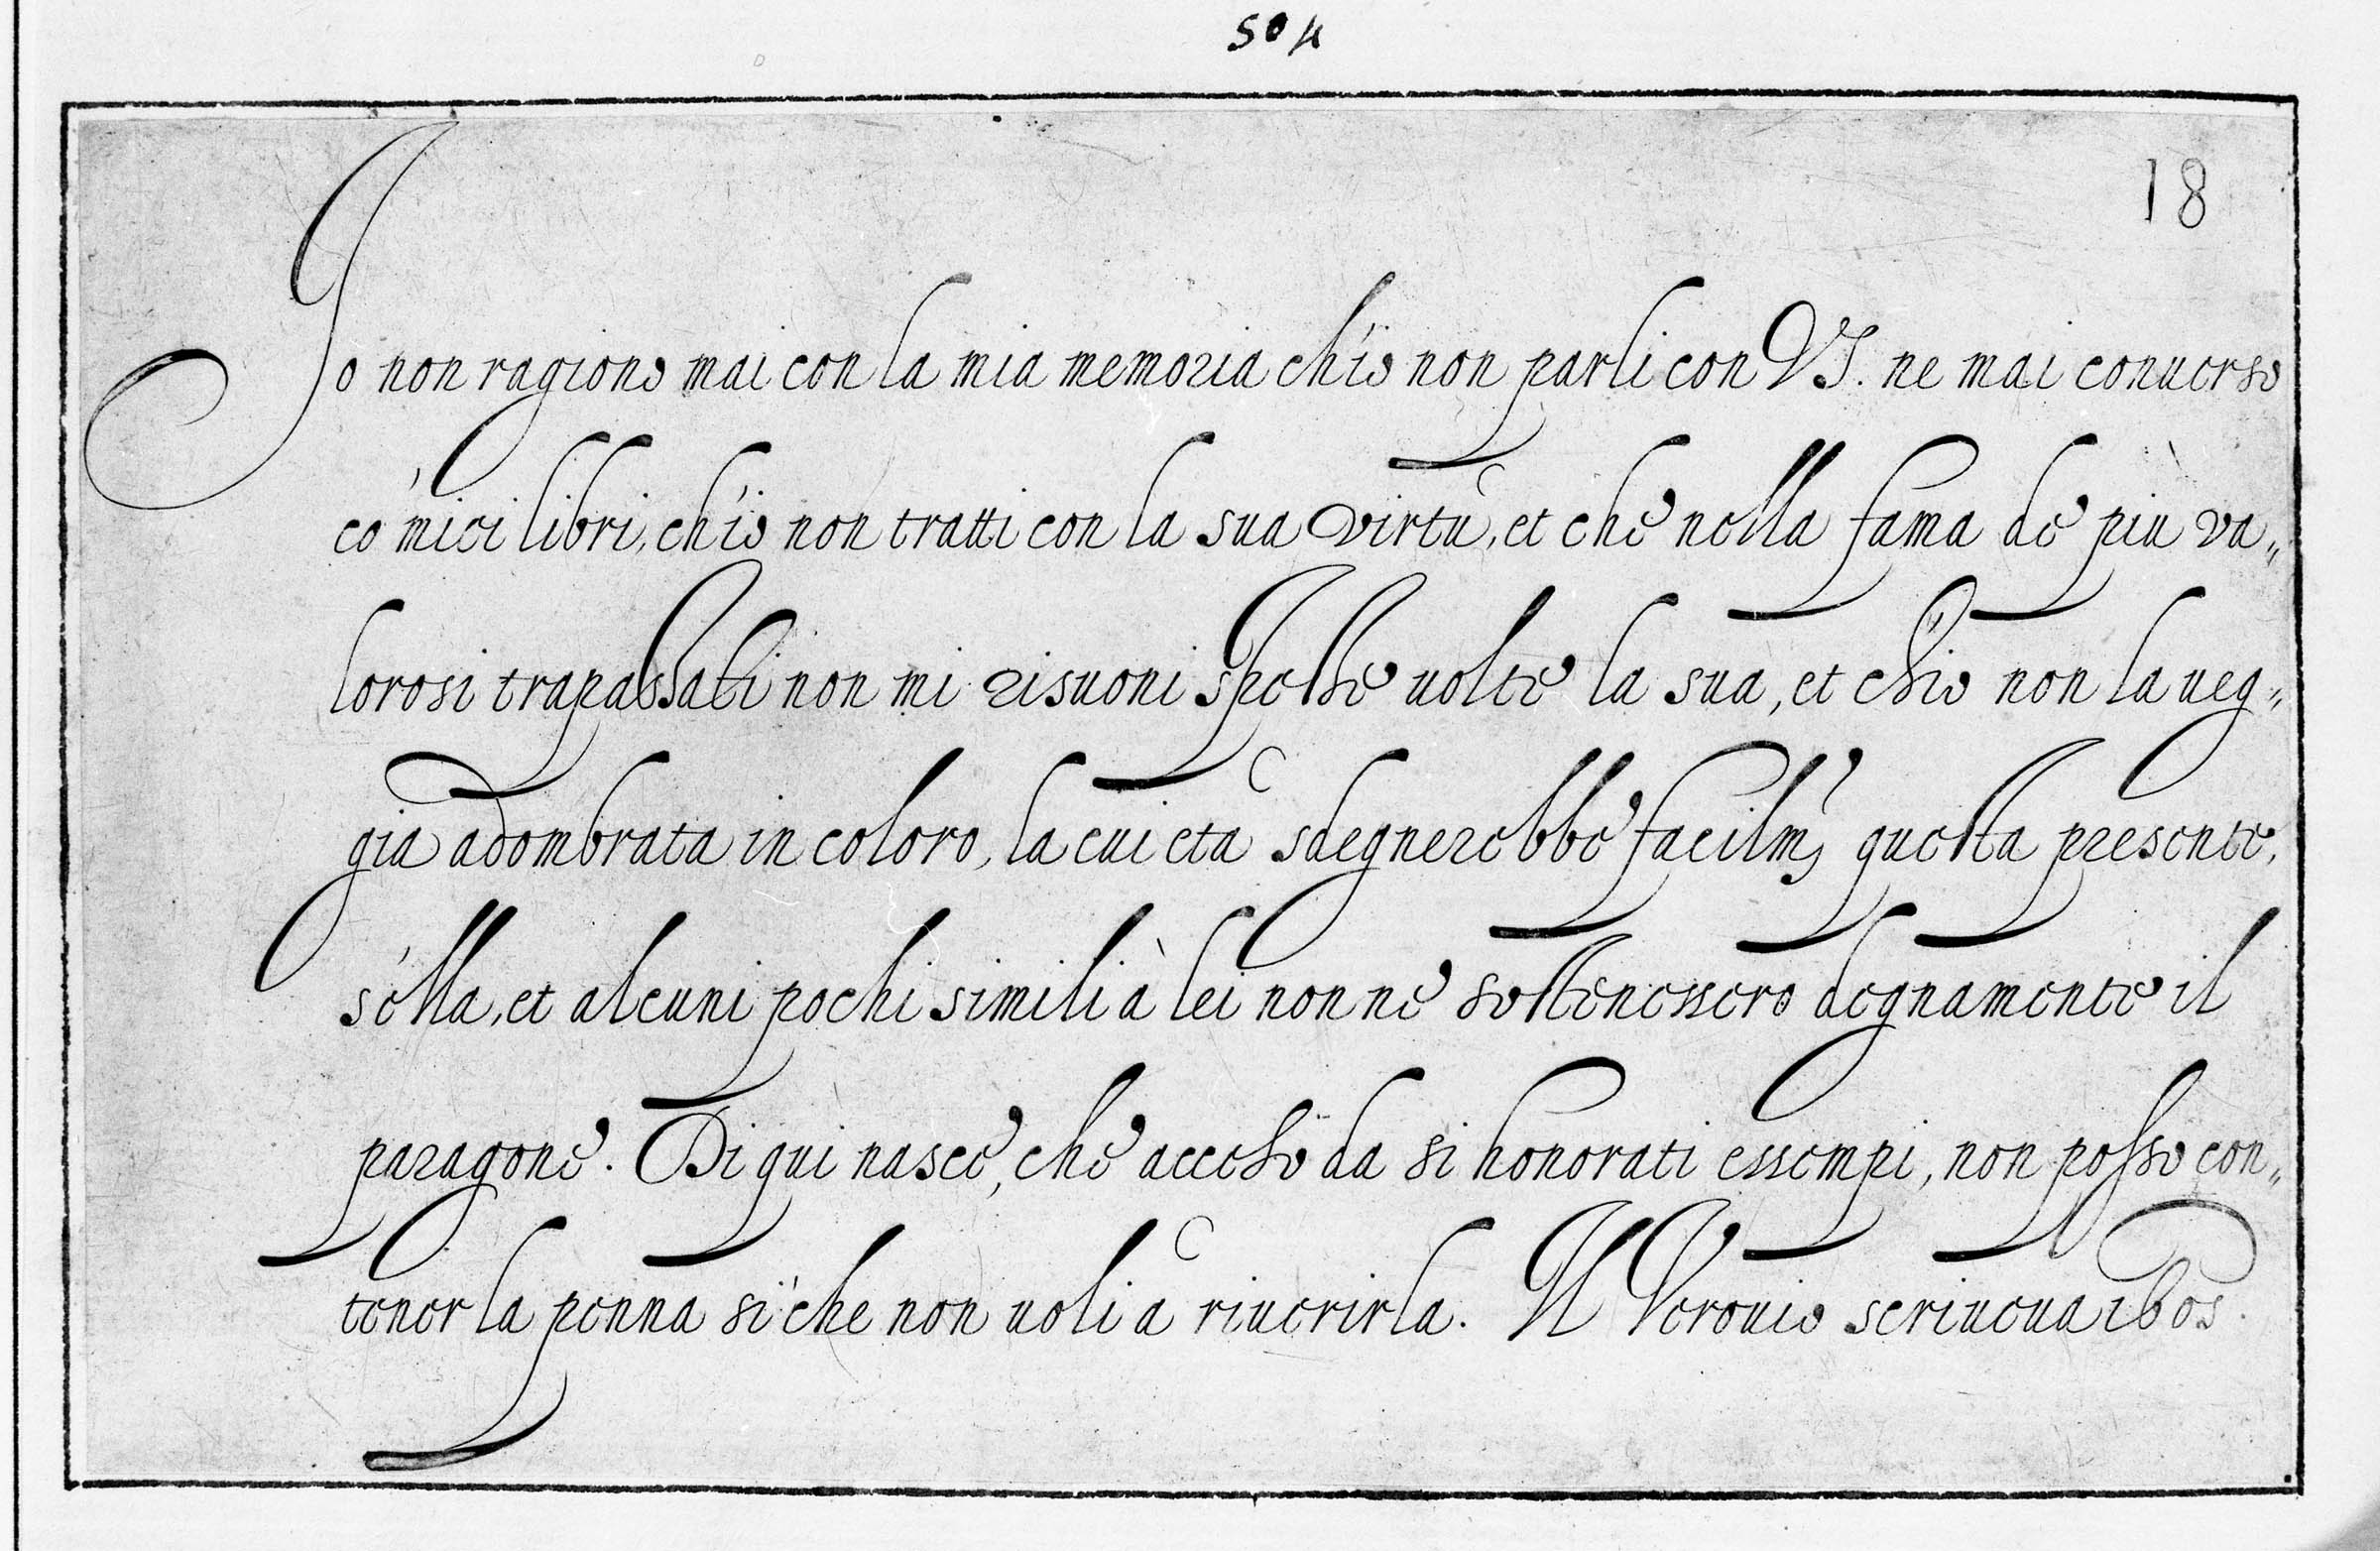 504
18
Io non ragiono mai con la mia memoria ch'io non parli con VS. ne mai conuerso
co' miei libri, ch'io non tratti con la sua virtù, et che nella fama de più va„
lorosi trapassati non mi risuoni spesse uolte la sua, et ch'io non la ueg„
gia adombrata in coloro, la cui età sdegnerebbe facilm, questa presente,
s'ella, et alcuni pochi simili à lei non ne sostenessero degnamente il
paragone. Di qui nasce, che acceso da si honorati essempi, non posso con„
tener la penna si che non uoli à riuerirla. Il Verouio scriueua